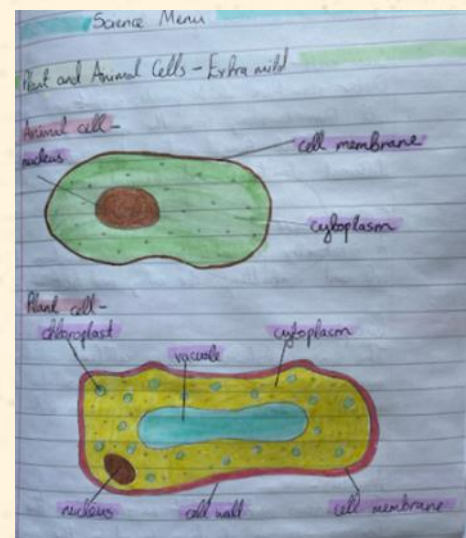 Science Menu
Plant and Animal Cells - Extra mild
Animal cell -
nucleus
cell membrane
cytoplasm
Plant cell -
chloroplast
vacuole
cytoplasm
nucleus
cell wall
cell membrane